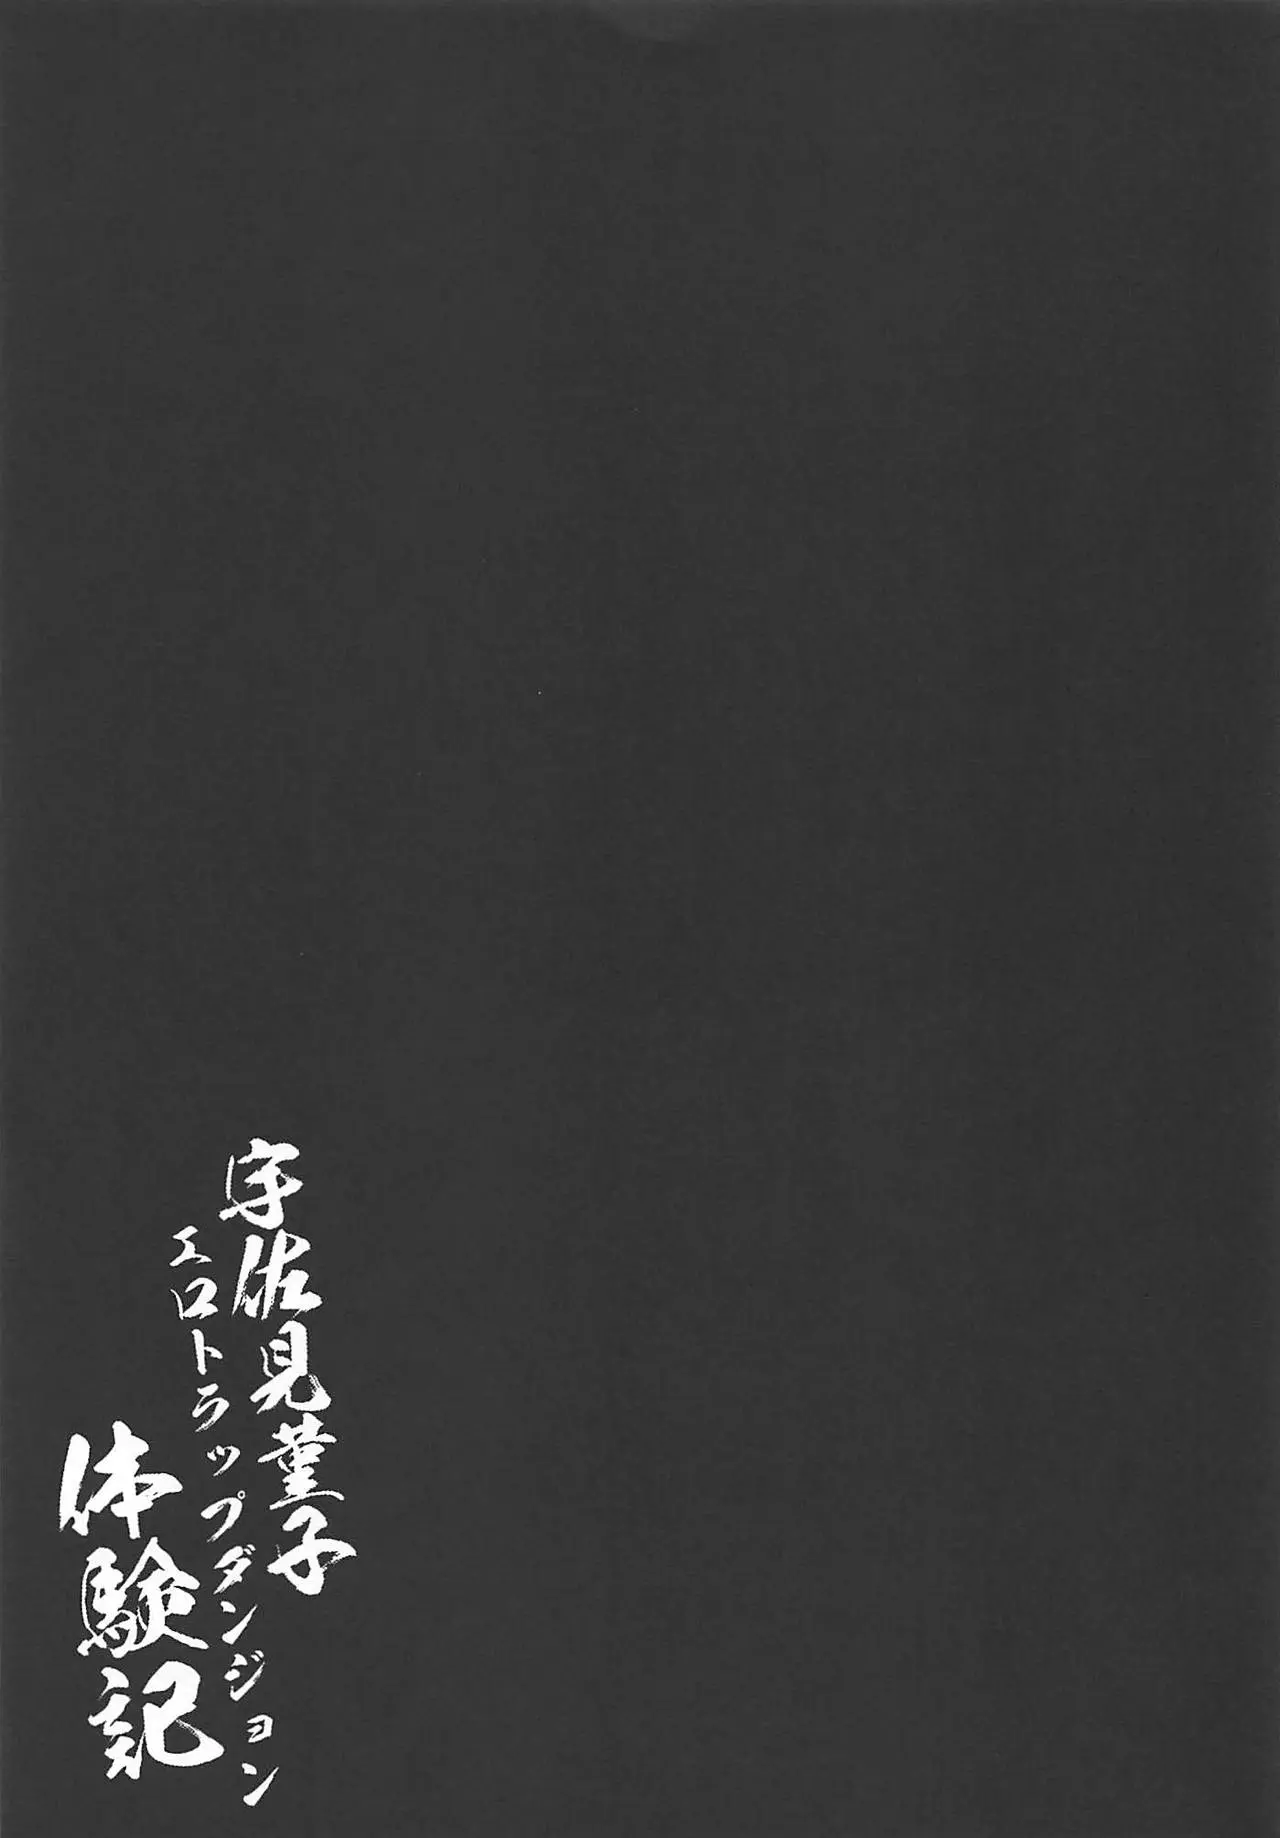 宇佐見菫子
エロトラップダンジョン
体験記